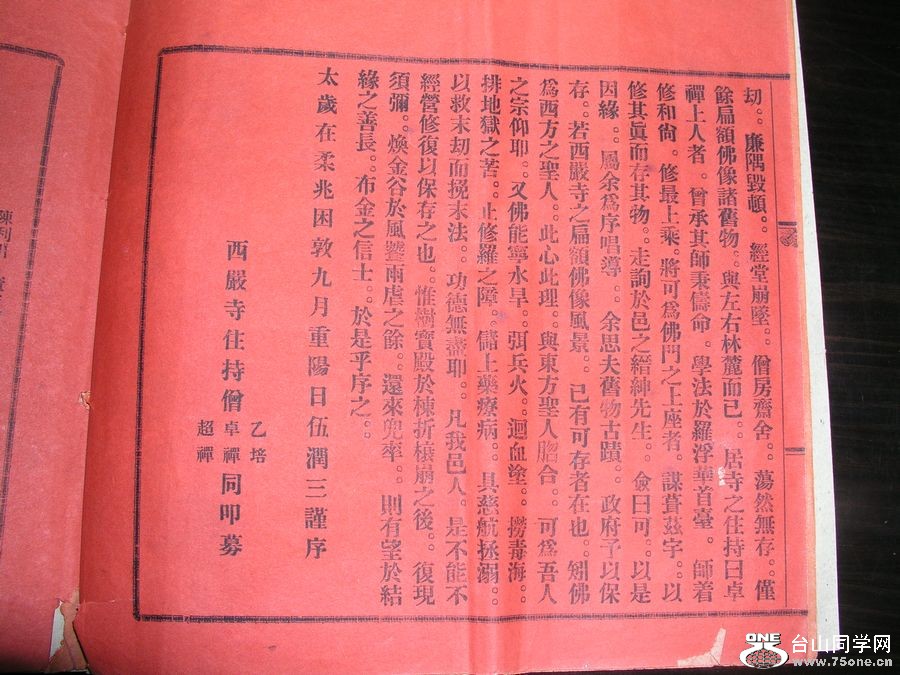 劫。。廉隅毀頓。。經堂崩墜。。僧房齋舍。。蕩然無存。。僅
餘扁額佛像諸舊物。。與左右林麓而已。。居寺之住持曰卓
禪上人者。曾承其師秉儔命。學法於羅浮華首臺。師着
修和尙。修最上乘。將可爲佛門之上座者。謀葺茲宇。。以
修其眞而存其物。走詢於邑之縉紳先生。僉曰可。以是
因緣。。屬余爲序唱導。。余思夫舊物古蹟。政府予以保
存。若西嚴寺之扁額佛像風景。已有可存者在也。矧佛
爲西方之聖人。。此心此理。。與東方聖人脗合。。可爲吾人
之宗仰耶。。又佛能寧水旱。弭兵火。迴血塗。。撈毒海。。
排地獄之苦。。止修羅之障。儲上藥療病。。具慈航拯溺。。
以救末刧而挽末法。功德無盡耶。凡我邑人。是不能不
經營修復以保存之也。惟樹寶殿於棟折榱崩之後。。復現
須彌。。煥金谷於風饕雨虐之餘。還來兜率。則有望於結
緣之善長。布金之信士。於是乎序之。。
太歲在柔兆困敦九月重陽日伍潤三謹序
西嚴寺住持僧
乙培
卓禪
超禪
同叩募
陳利
ONE
75
台山同学网
www.75one.cn